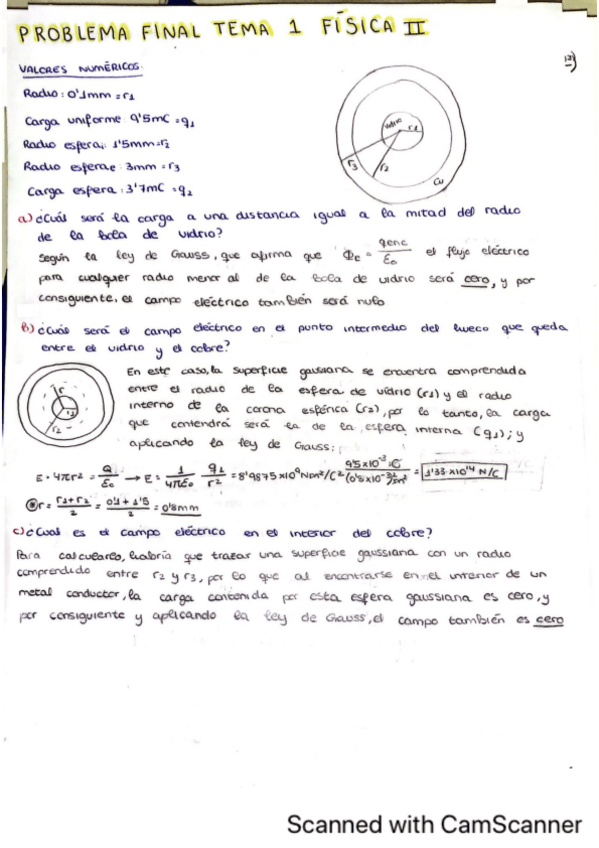 PROBLEMA FINAL TEMA 1 FÍSICA II
VALORES NUMÉRICOS:
Radio: 0'1mm = r1
Carga uniforme 9'5mC = q1
Radio esferai: 1'5mm = r2
Radio esferae: 3mm = r3
Carga esfera: 3'7mC = q2
vidrio r1
r3 r2
Cu
a) ¿Cuál será la carga a una distancia igual a la mitad del radio
de la bola de vidrio?
Según la ley de Gauss, que afirma que Φe = qenc/ε0 el flujo eléctrico
para cualquier radio menor al de la bola de vidrio será cero, y por
consiguiente, el campo eléctrico también será nulo
b) ¿Cuál será el campo eléctrico en el punto intermedio del hueco que queda
entre el vidrio y el cobre?
En este caso, la superficie gaussiana se encuentra comprendida
entre el radio de la esfera de vidrio (r1) y el radio
interno de la corona esférica (r2), por lo tanto, la carga
que contendrá será la de la esfera interna (q1); y
aplicando la ley de Gauss:
r
r2
E · 4πr² = Q/ε0 → E = 1/4πε0 q1/r² = 8'9875×10⁹ Nm²/C² 9'5×10⁻³ C/(0'8×10⁻³)² m² = 1'33×10¹⁴ N/C
r = r1+r2/2 = 0'1+1'5/2 = 0'8mm
c) ¿Cual es el campo eléctrico en el interior del cobre?
Para calcularlo, habría que trazar una superficie gaussiana con un radio
comprendido entre r2 y r3, por lo que al encontrarse en el interior de un
metal conductor, la carga contenida por esta esfera gaussiana es cero, y
por consiguiente y aplicando la ley de Gauss, el campo también es cero
Scanned with CamScanner